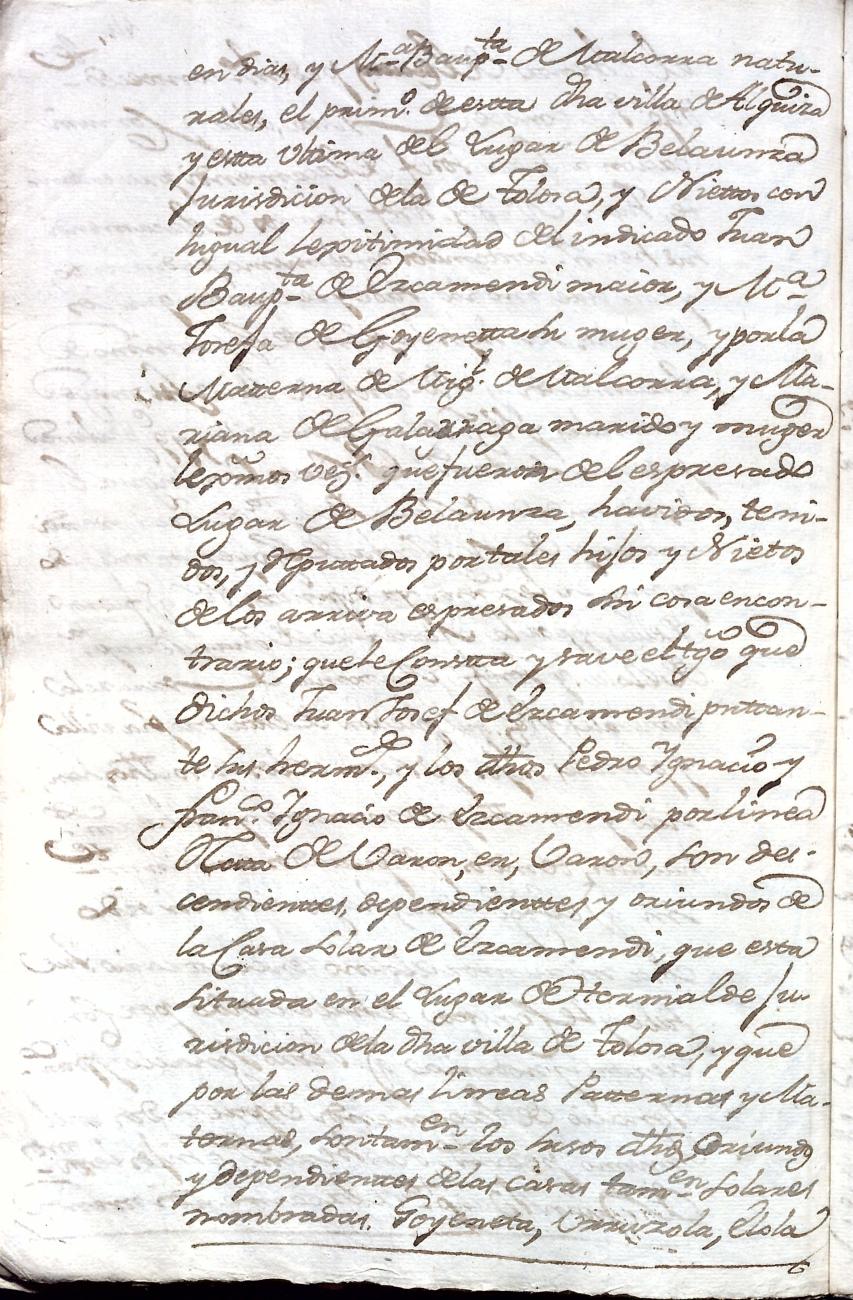 en dias, y Mª Baupta de Ualcorra natu-
rales, el primº. de estta dha villa de Alquiza
y estta Ultima del Lugar de Belaunza
Jurisdicion dela de Tolosa, y Niettos con
higual lexitimidad del indicado Juan
Baupta de Yrcamendi maior, y Mª
Josefa de Goyenetta su muger, y por la
Matterna de Migl. de Ualcorra, y Ma-
riana de Galarraga marido y muger
lexmos vezs. que fueron del espresado
Lugar de Belaunza, havidos, teni-
dos, y Rputtados por tales hijos y Nietos
de los arriva espresados sin cosa encon-
trario; que le Constta y save el tgo que
dichos Juan Josef de Yrcamendi puttan-
te sus hermos., y los dhos Pedro Ygnacio y
Franco. Ygnacio de Yrcamendi por linea
Rtta de Varon, en, Varon, son des-
cendienttes, dependienttes y oriundos de
la Casa Solar de Yrcamendi, que esta
situada en el Lugar de termialde Ju-
risdicion dela dha villa de Tolosa, y que
por las demas lineas Patternas y Ma-
ternas, son tamen los susos dhos Oriundos
y dependienttes delas casas tamen Solares
nombradas. Goyeneta, Urruzola, Elola